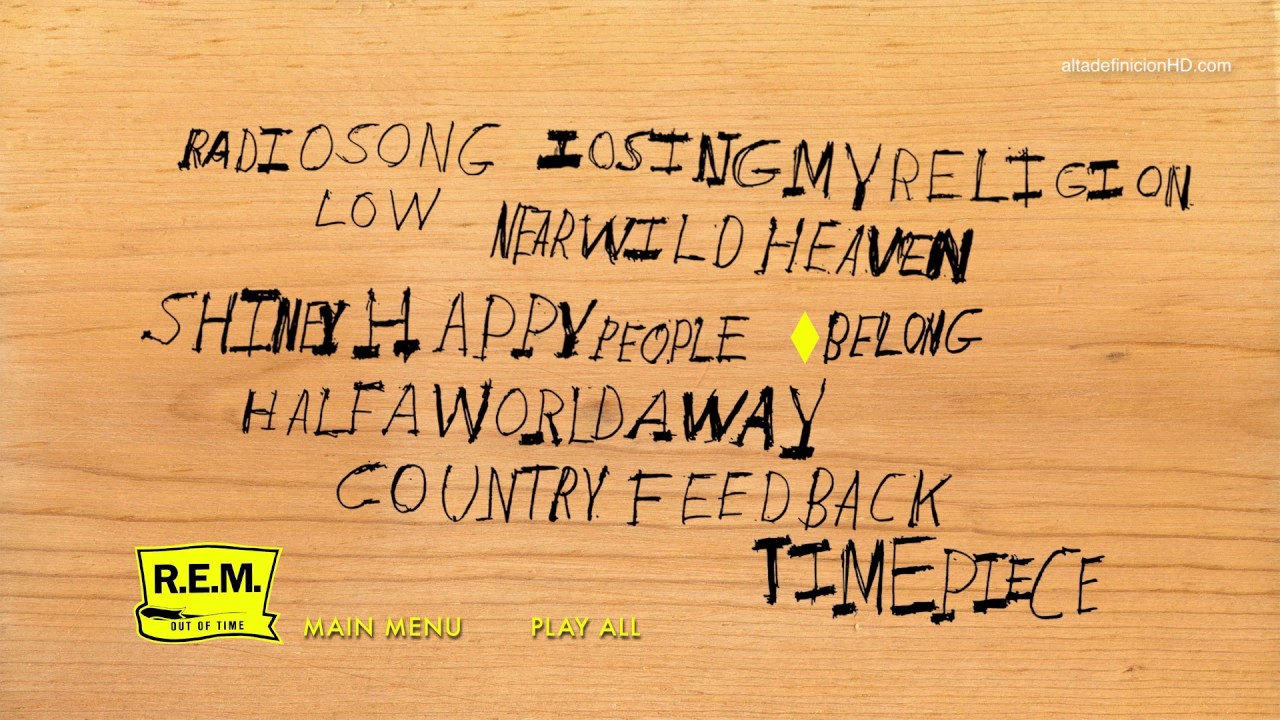 altadefinicionHD.com
RADIO SONG LOSING MY RELIGION
LOW
NEAR WILD HEAVEN
SHINEY HAPPY PEOPLE BELONG
HALF A WORLD AWAY
COUNTRY FEEDBACK
TIME PIECE
R.E.M.
OUT OF TIME
MAIN MENU PLAY ALL